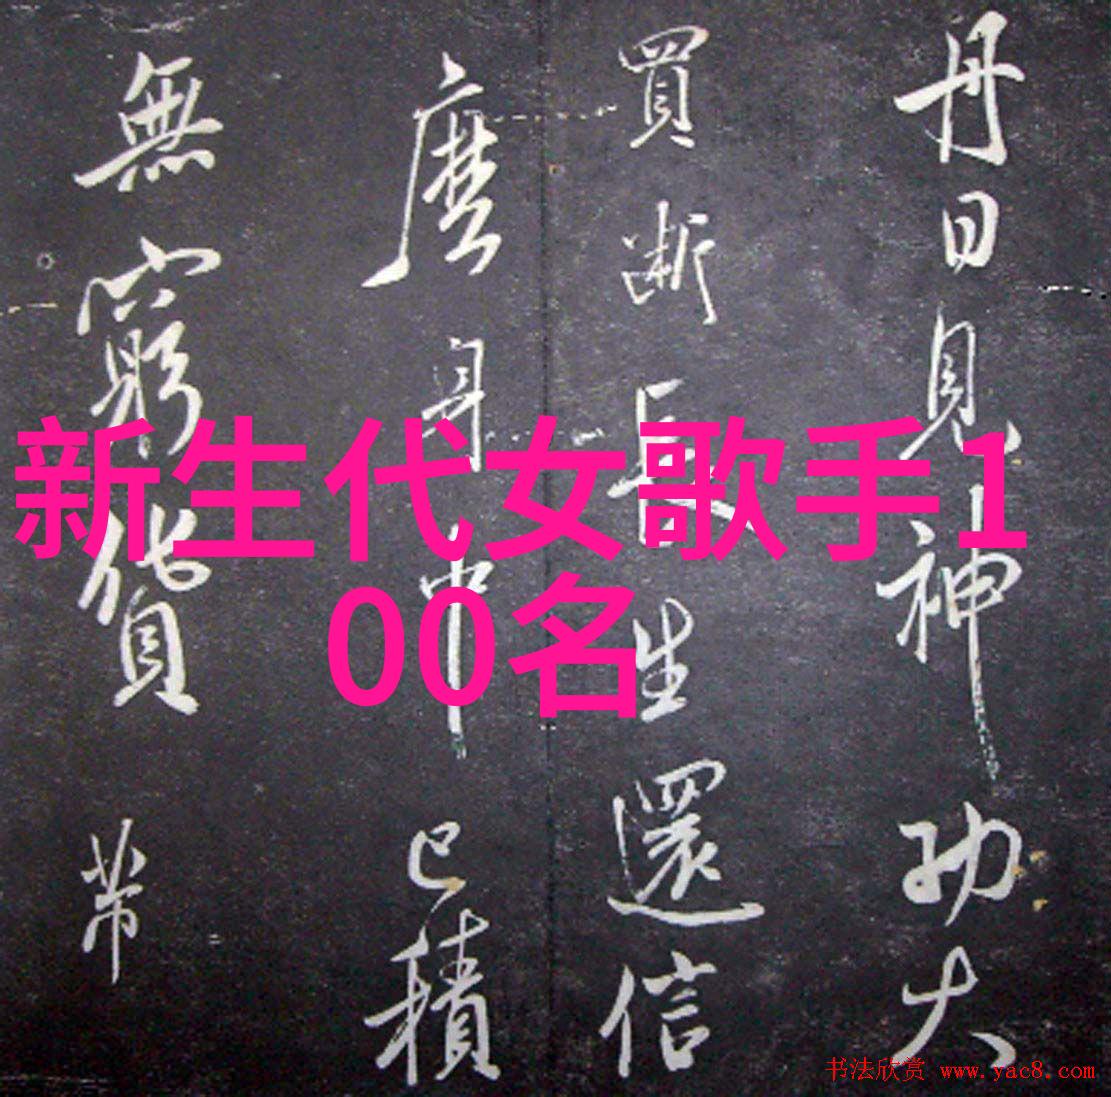 丹日見神功大
買斷長生還信
麼身中已積
無窮貨帶
新生代女歌手1
00名
书法欣赏 www.yac8.com